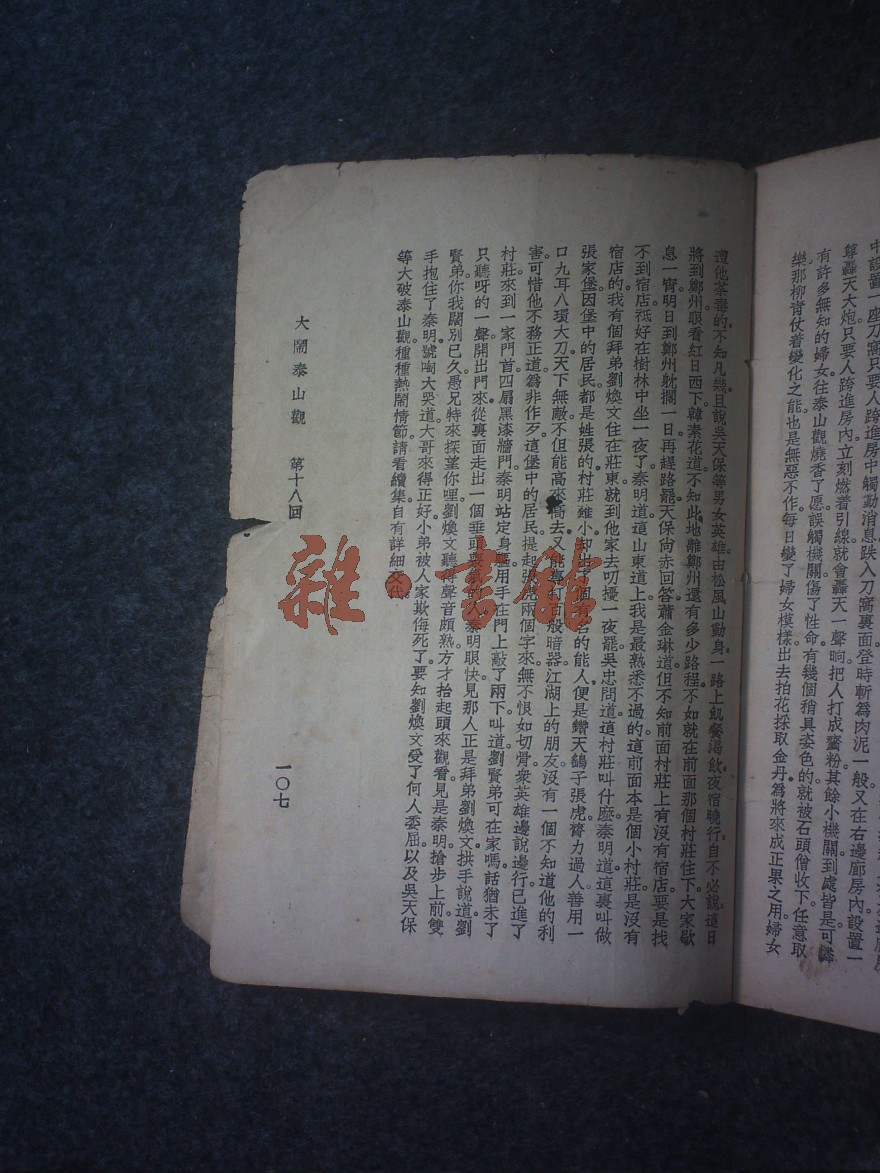 中設置一座刀窩只要人跨進房中觸動消息跌入刀窩裏面登時斬爲肉泥一般又在右邊廊房內設置一
尊轟天大炮只要人跨進房內立刻燃着引線就會轟天一聲晌把人打成虀粉其餘小機關到處皆是可憐
有許多無知的婦女往泰山觀燒香了愿誤觸機關傷了性命有幾個稍具姿色的就被石頭僧收下任意取
樂那柳青仗着變化之能也是無惡不作每日變了婦女模樣出去拍花採取金丹爲將來成正果之用婦女
遭他荼毒的不知凡幾且說吳天保等男女英雄由松風山動身一路上飢餐渴飲夜宿曉行自不必說這日
將到鄭州眼看紅日西下韓素花道不知此地離鄭州還有多少路程不如就在前面那個村莊住下大家歇
息一宵明日到鄭州躭擱一日再趕路罷天保尚亦回答蕭金琳道但不知前面村莊上有沒有宿店要是找
不到宿店祇好在樹林中坐一夜了泰明道這山東道上我是最熟悉不過的這前面本是個小村莊是沒有
宿店的我有個拜弟劉煥文住在莊東就到他家去叨擾一夜罷吳忠問道這村莊叫什麽泰明道這裏叫做
張家堡因堡中的居民都是姓張的村莊雖小却出了個有名的能人便是鑽天鷂子張虎膂力過人善用一
口九耳八環大刀天下無敵不但能高來高去又能專打百般暗器江湖上的朋友沒有一個不知道他的利
害可惜他不務正道爲非作歹這堡中的居民提起張虎兩個字來無不恨如切骨衆英雄邊說邊行已進了
村莊來到一家門首四扇黑漆牆門泰明站定身軀用手在門上敲了兩下叫道劉賢弟可在家嗎話猶未了
只聽呀的一聲開出門來從裏面走出一個垂頭喪氣的人泰明眼快見那人正是拜弟劉煥文拱手說道劉
賢弟你我闊別已久愚兄特來探望你哩劉煥文聽得聲音頗熟方才抬起頭來觀看見是泰明搶步上前雙
手抱住了泰明號啕大哭道大哥來得正好小弟被人家欺侮死了要知劉煥文受了何人委屈以及吳天保
等大破泰山觀種種熱鬧情節請看續集自有詳細交代
大鬧泰山觀　第十八回
一〇七
雜·書館